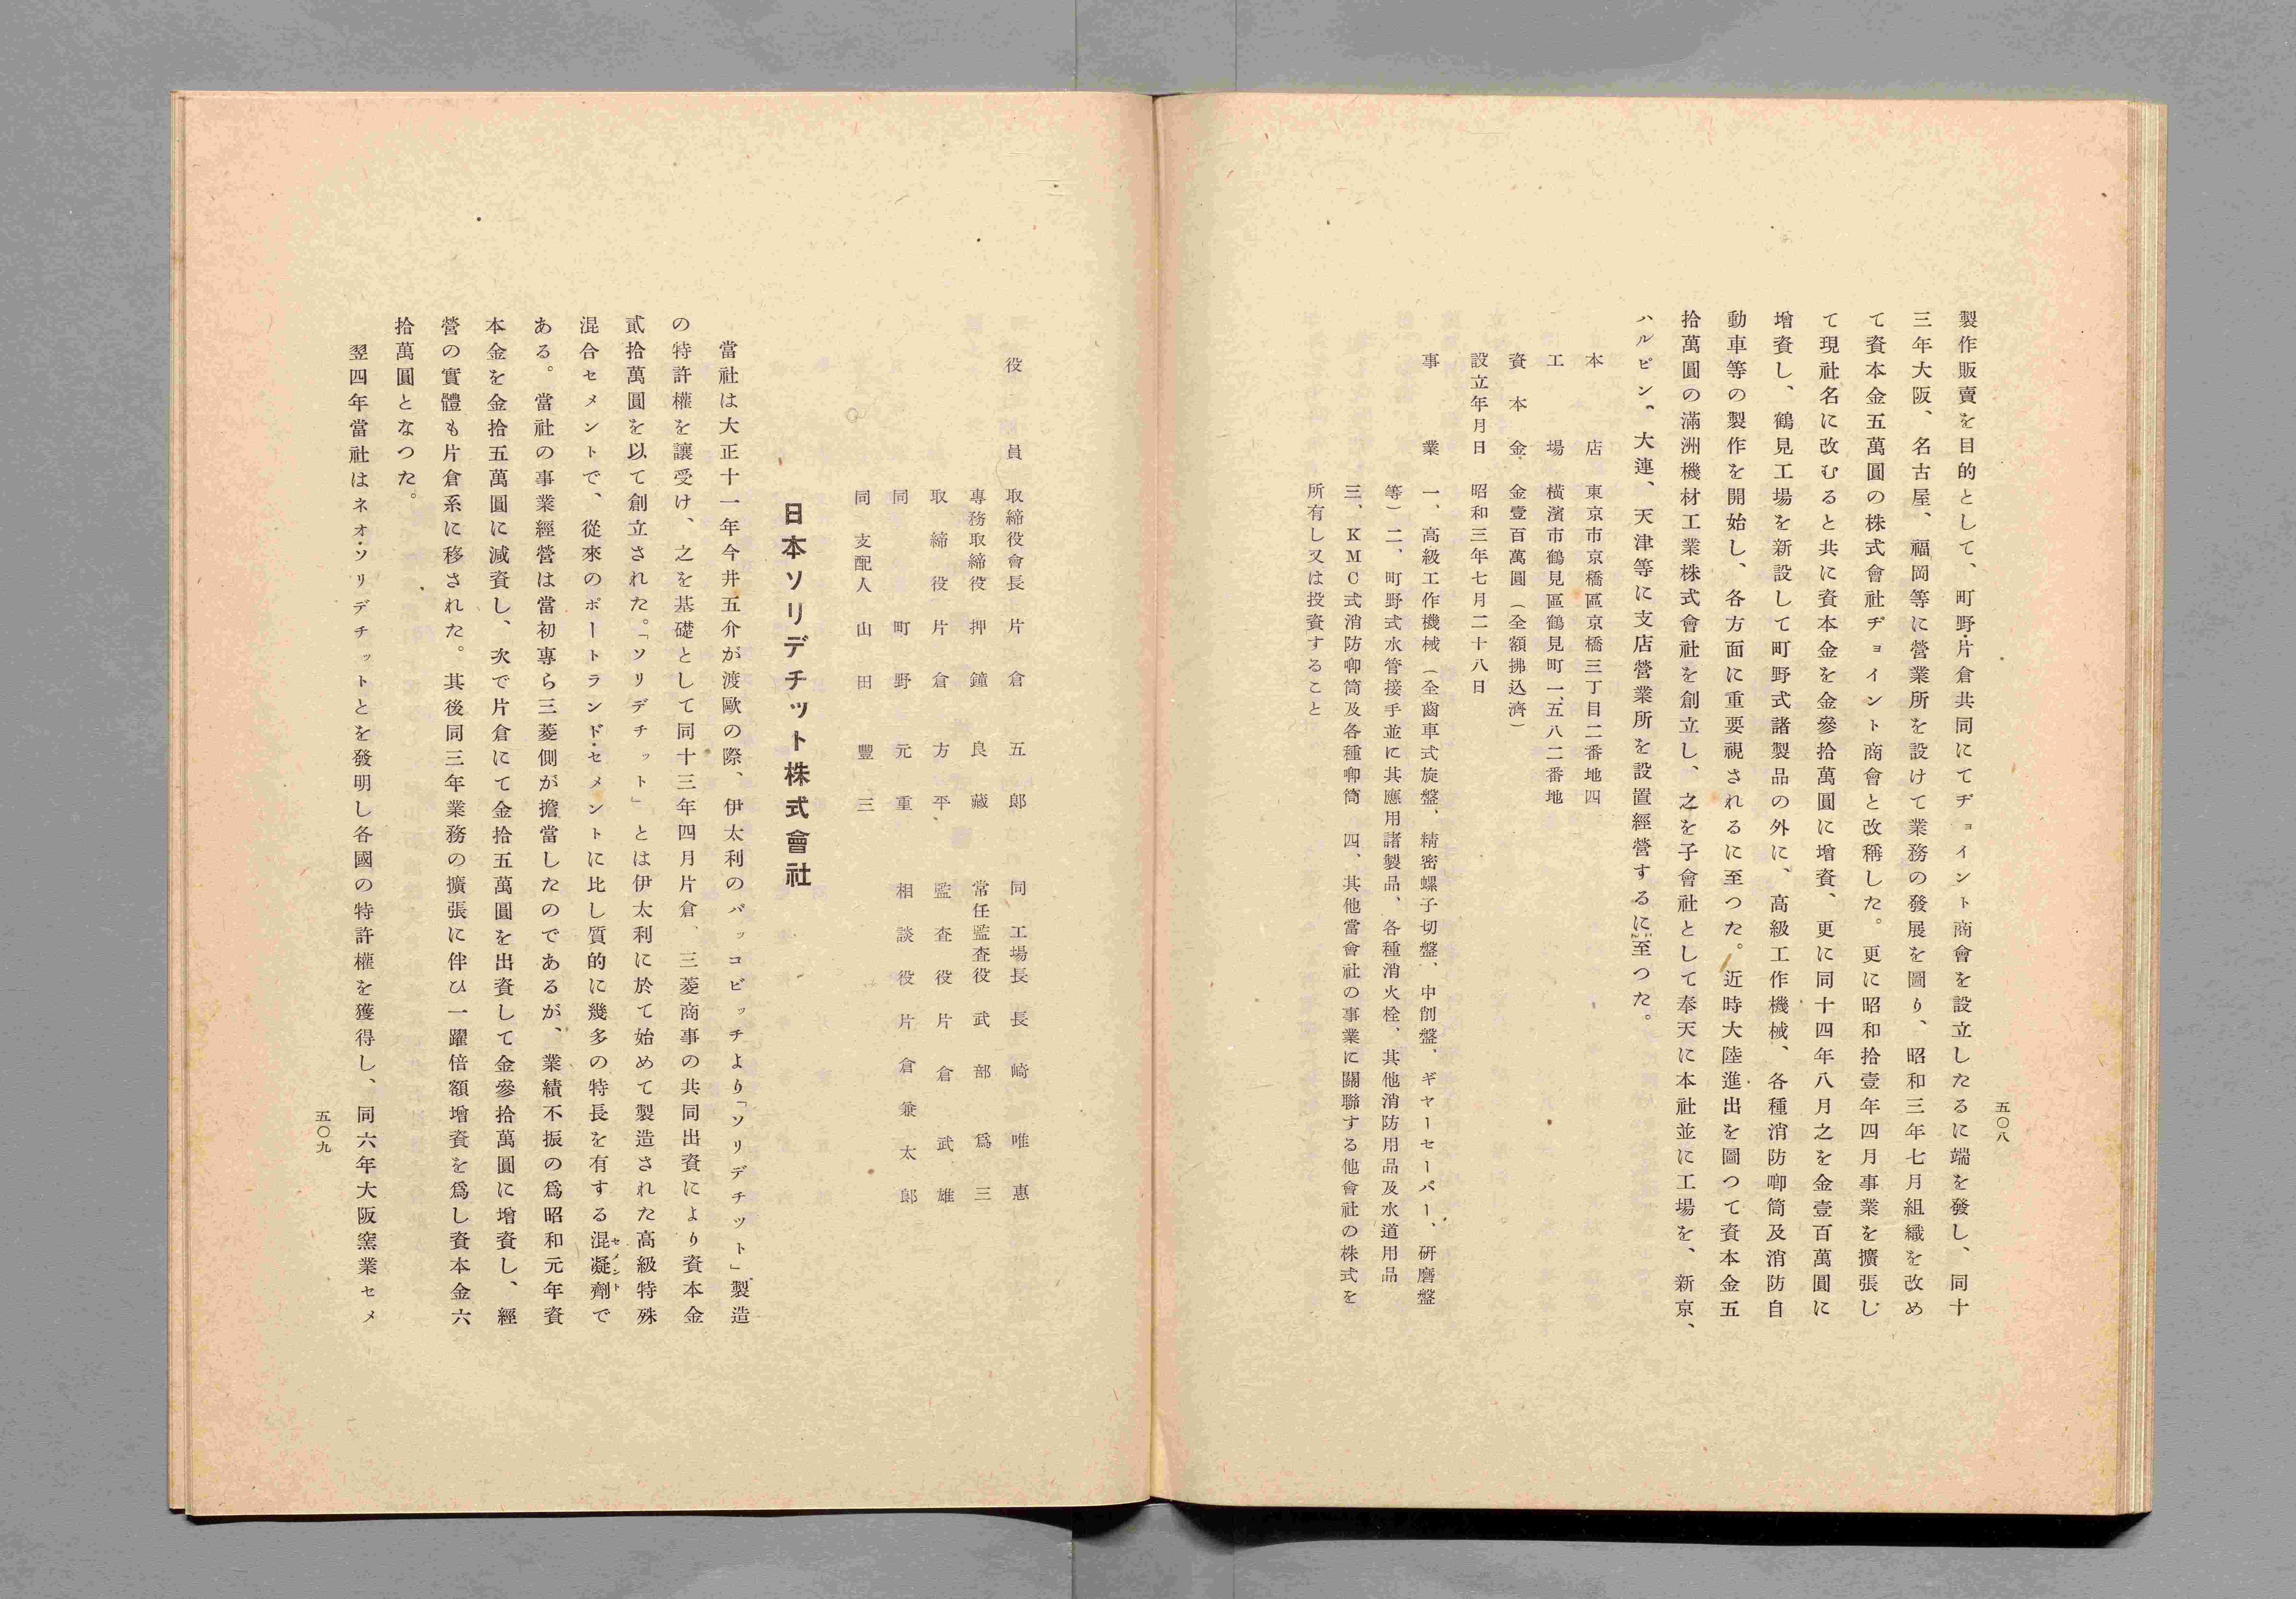 五〇八
製作販賣を目的として、町野・片倉共同にてヂョイント商會を設立したるに端を發し、同十
三年大阪、名古屋、福岡等に營業所を設けて業務の發展を圖り、昭和三年七月組織を改め
て資本金五萬圓の株式會社ヂョイント商會と改稱した。更に昭和拾壹年四月事業を擴張し
て現社名に改むると共に資本金を金參拾萬圓に增資、更に同十四年八月之を金壹百萬圓に
增資し、鶴見工場を新設して町野式諸製品の外に、高級工作機械、各種消防喞筒及消防自
動車等の製作を開始し、各方面に重要視されるに至つた。近時大陸進出を圖つて資本金五
拾萬圓の滿洲機材工業株式會社を創立し、之を子會社として奉天に本社並に工場を、新京、
ハルビン、大連、天津等に支店營業所を設置經營するに至つた。
本店 東京市京橋區京橋三丁目二番地四
工場 橫濱市鶴見區鶴見町一、五八二番地
資本金 金壹百萬圓（全額拂込濟）
設立年月日 昭和三年七月二十八日
事業 一、高級工作機械（全齒車式旋盤、精密螺子切盤、中削盤、ギヤーセーパー、硏磨盤
等）二、町野式水管接手並に其應用諸製品、各種消火栓、其他消防用品及水道用品
三、KMC式消防喞筒及各種喞筒 四、其他當會社の事業に關聯する他會社の株式を
所有し又は投資すること
役員 取締役會長 片倉五郎 同 工場長 長崎唯惠
專務取締役 押鐘良藏 常任監査役 武部爲三
取締役 片倉方平 監査役 片倉武雄
同 町野元重 相談役 片倉兼太郎
同 支配人 山田豐三
日本ソリデチット株式會社
當社は大正十一年今井五介が渡歐の際、伊太利のパッコビッチより「ソリデチット」製造
の特許權を讓受け、之を基礎として同十三年四月片倉、三菱商事の共同出資により資本金
貳拾萬圓を以て創立された。「ソリデチット」とは伊太利に於て始めて製造された高級特殊
混合セメントで、從來のポートランド・セメントに比し質的に幾多の特長を有する混凝劑で
セメント
ある。當社の事業經營は當初專ら三菱側が擔當したのであるが、業績不振の爲昭和元年資
本金を金拾五萬圓に減資し、次で片倉にて金拾五萬圓を出資して金參拾萬圓に增資し、經
營の實體も片倉系に移された。其後同三年業務の擴張に伴ひ一躍倍額增資を爲し資本金六
拾萬圓となつた。
翌四年當社はネオ・ソリデチットとを發明し各國の特許權を獲得し、同六年大阪窯業セメ
五〇九